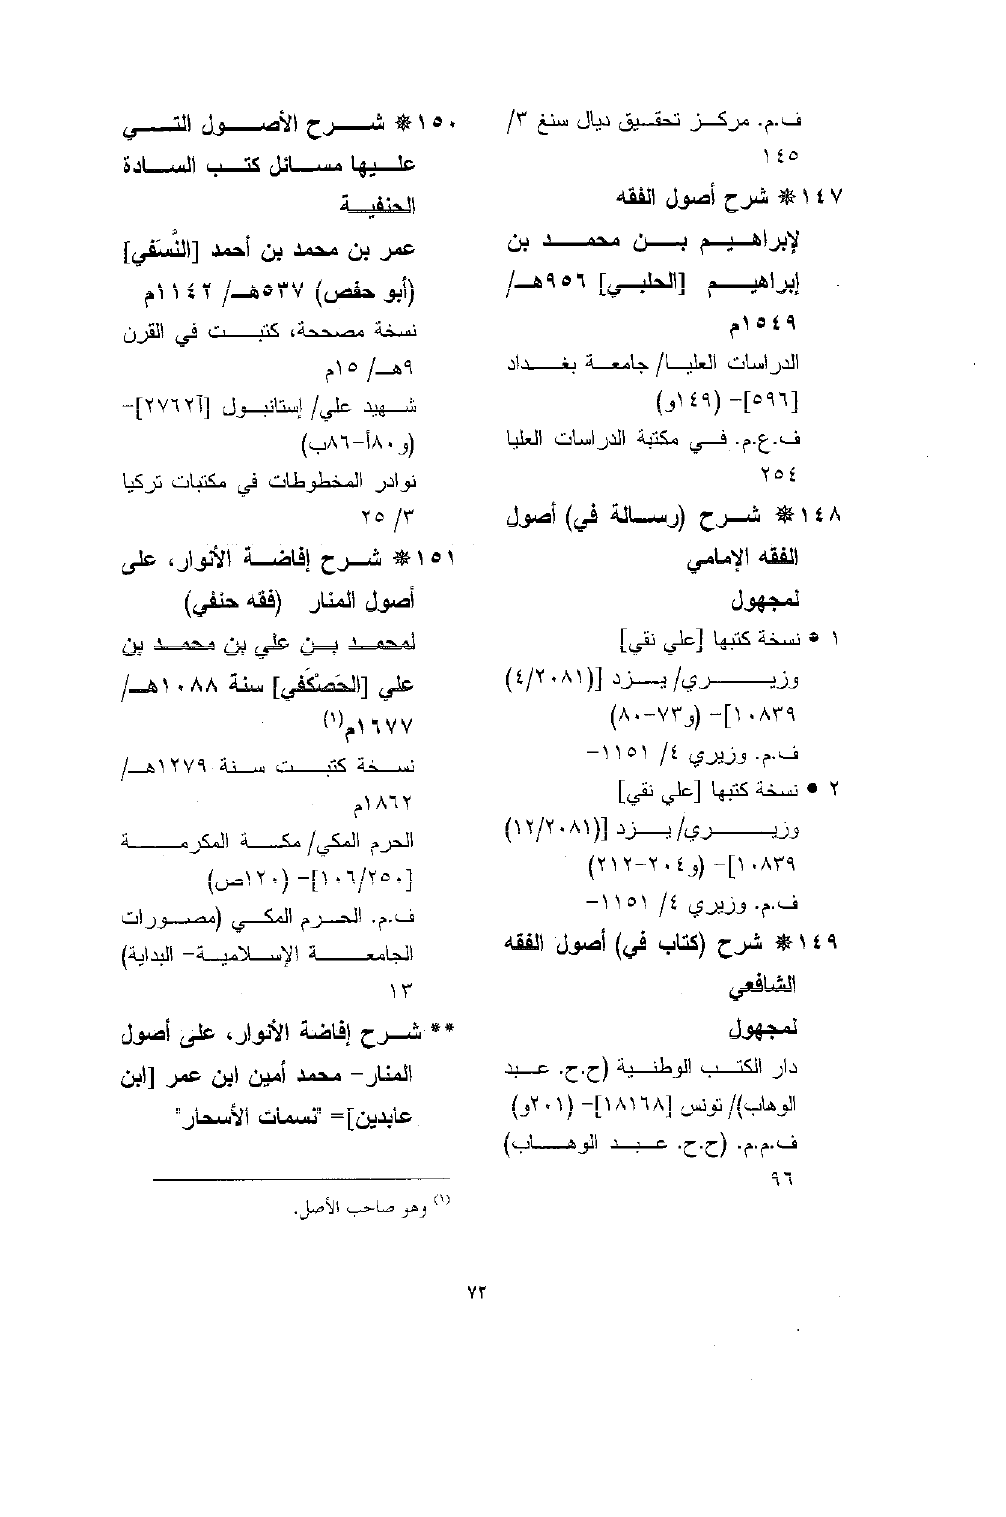 ف.م. مركز تحقيق ديال سنغ ٣/
١٤٥
١٤٧❊ شرح أصول الفقه
لإبراهيم بن محمد بن
إبراهيم [الحلبي] ٩٥٦هـ/
١٥٤٩م
الدراسات العليا/ جامعة بغداد
[٥٩٦]- (١٤٩و)
ف.ع.م. في مكتبة الدراسات العليا
٢٥٤
١٤٨❊ شرح (رسالة في) أصول
الفقه الإمامي
لمجهول
١ • نسخة كتبها [علي نقي]
وزيري/ يزد [(٤/٢٠٨١)
١٠٨٣٩]- (و٧٣-٨٠)
ف.م. وزيري ٤/ ١١٥١-
٢ • نسخة كتبها [علي نقي]
وزيري/ يزد [(١٢/٢٠٨١)
١٠٨٣٩]- (و٢٠٤-٢١٢)
ف.م. وزيري ٤/ ١١٥١-
١٤٩❊ شرح (كتاب في) أصول الفقه
الشافعي
لمجهول
دار الكتب الوطنية (ح.ح. عبد
الوهاب)/ تونس [١٨١٦٨]- (٢٠١و)
ف.م.م. (ح.ح. عبد الوهاب)
٩٦
١٥٠❊ شرح الأصول التي
عليها مسائل كتب السادة
الحنفية
عمر بن محمد بن أحمد [النَّسَفي]
(أبو حفص) ٥٣٧هـ/ ١١٤٢م
نسخة مصححة، كتبت في القرن
٩هـ/ ١٥م
شهيد علي/ إستانبول [٢٧٦٢آ]-
(و٨٠أ-٨٦ب)
نوادر المخطوطات في مكتبات تركيا
٣/ ٢٥
١٥١❊ شرح إفاضة الأنوار، على
أصول المنار (فقه حنفي)
لمحمد بن علي بن محمد بن
علي [الحَصْكَفي] سنة ١٠٨٨هـ/
١٦٧٧م(١)
نسخة كتبت سنة ١٢٧٩هـ/
١٨٦٢م
الحرم المكي/ مكة المكرمة
[١٠٦/٢٥٠]- (١٢٠ص)
ف.م. الحرم المكي (مصورات
الجامعة الإسلامية- البداية)
١٣
** شرح إفاضة الأنوار، على أصول
المنار- محمد أمين ابن عمر [ابن
عابدين]= "نسمات الأسحار"
(١) وهو صاحب الأصل.
٧٢